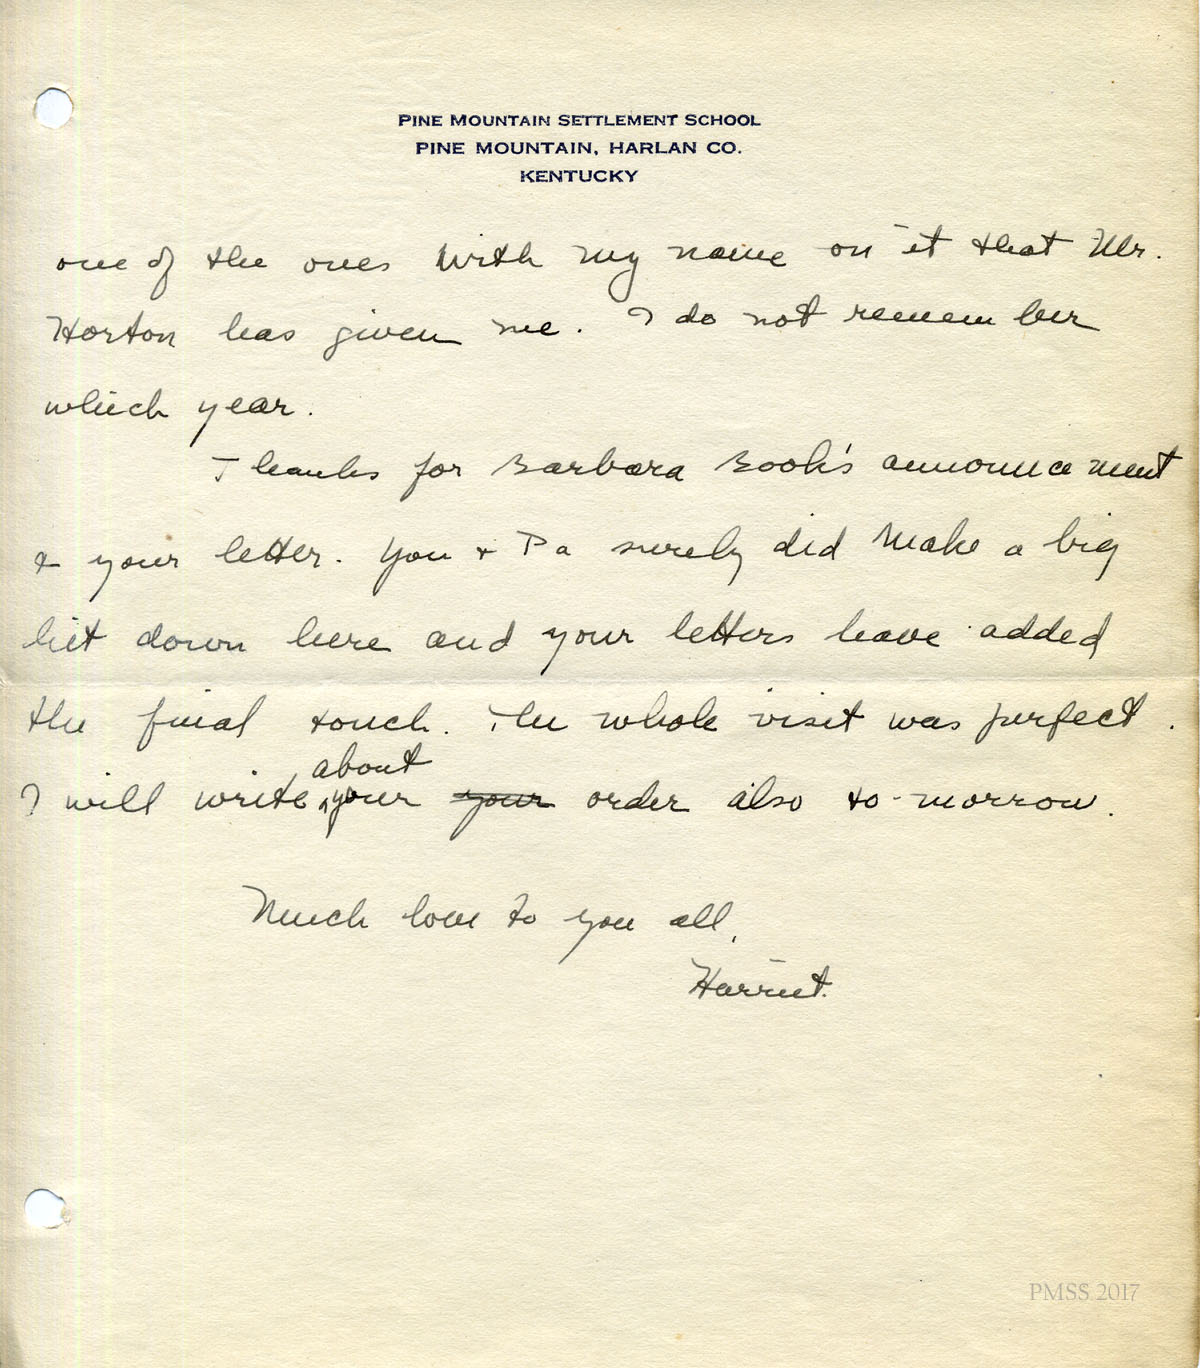 PINE MOUNTAIN SETTLEMENT SCHOOL
PINE MOUNTAIN, HARLAN CO.
KENTUCKY
one of the ones with my name on it that Mr.
Horton has given me. I do not remember
which year.
Thanks for Barbara Book's announcement
& your letter. You & Pa surely did make a big
hit down here and your letters have added
the final touch. The whole visit was perfect.
about
I will write your your order also to-morrow.
Much love to you all,
Harriet.
PMSS 2017